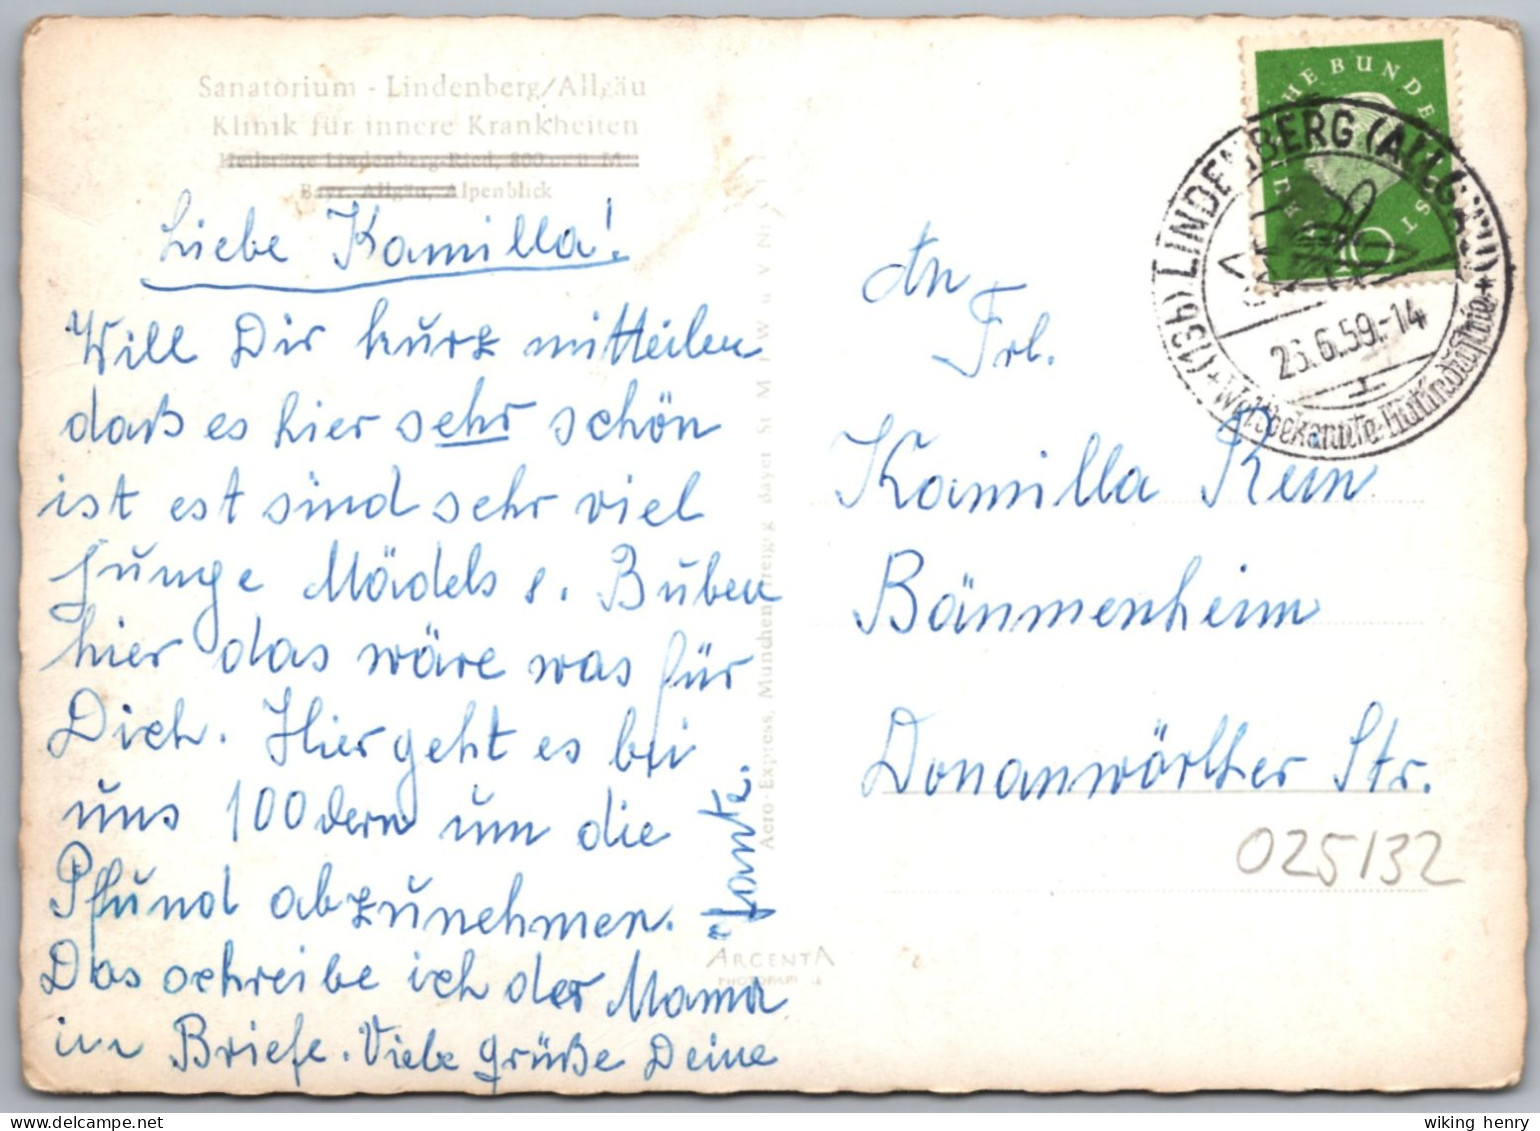 Sanatorium - Lindenberg/Allgäu
Klinik für innere Krankheiten
Heilstätte Lindenberg-Ried, 800 m ü. M.
Bayr. Allgäu, Alpenblick
Liebe Kamilla!
Will Dir kurz mitteilen
daß es hier sehr schön
ist est sind sehr viel
junge Mädels u. Buben
hier das wäre was für
Dich. Hier geht es bei
uns 100 dern um die
Pfund abzunehmen.
Das schreibe ich der Mama
im Briefe. Viele grüße Deine
Tante.
Aero-Express, München freigeg. Bayer St M f W u V Nr
ARGENTA
PHOTOPAPIER
DEUTSCHE BUNDESPOST
10
(13b) LINDENBERG (ALLGÄU)
23.6.59.-14
Weltbekannte Hutindustrie
An
Frl.
Kamilla Rein
Bäumenheim
Donauwörther Str.
025/32
wiking henry